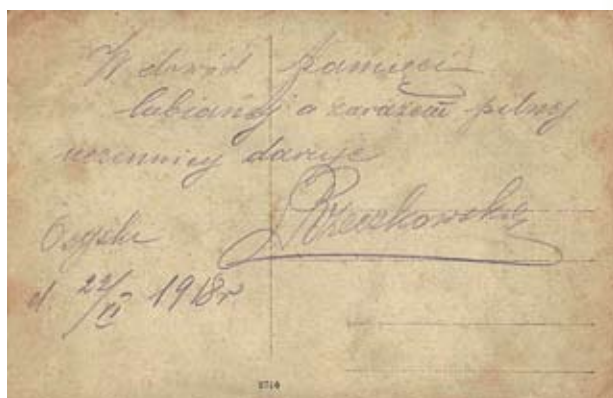 W dowód pamięci
lubianej a zarazem pilnej
uczennicy daruje
Rzeczkowska
d. 22/II 1918r